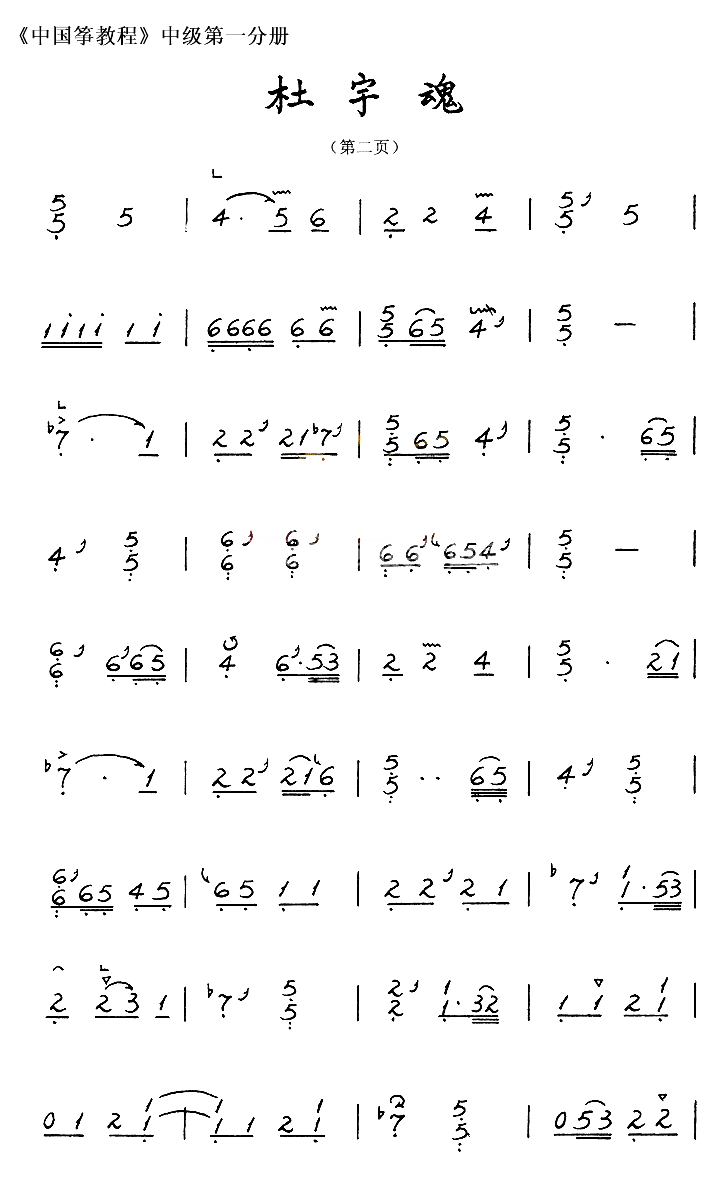 《中国筝教程》中级第一分册
杜宇魂
（第二页）
5 5 5 | 4· 5 6 | 2 2 4 | 5 5 5 |
1 1 1 1 1 1 | 6 6 6 6 6 6 | 5 5 6 5 4 | 5 5 — |
♭7· 1 | 2 2 2 1 ♭7 | 5 5 6 5 4 | 5 5 · 6 5 |
4 5 5 | 6 6 6 6 | 6 6 6 5 4 | 5 5 — |
6 6 6 6 5 | 4 6· 5 3 | 2 2 4 | 5 5 · 2 1 |
♭7· 1 | 2 2 2 1 6 | 5 5 ·· 6 5 | 4 5 5 |
6 6 6 5 4 5 | 6 5 1 1 | 2 2 2 1 | ♭7 1 1· 5 3 |
2 2 3 1 | ♭7 5 5 | 2 2 1 1· 3 2 | 1 1 2 1 1 |
0 1 2 1 1 | 1 1 1 2 1 1 | ♭7 5 5 | 0 5 3 2 2 |